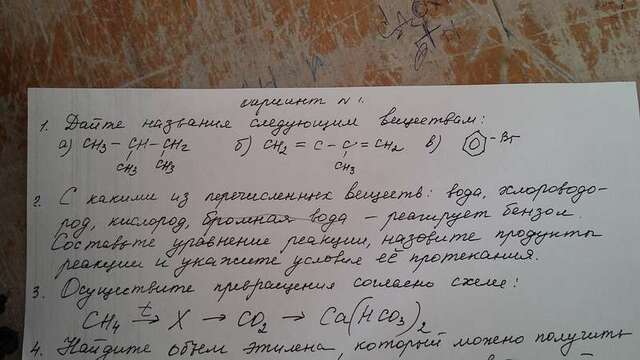 вариант N 1.
1. Дайте названия следующим веществам:
а) CH3 – CH – CH2 б) CH2 = C – C = CH2 в) – Br
CH3 CH3 CH3
2. С какими из перечисленных веществ: вода, хлороводо-
род, кислород, бромная вода – реагирует бензол.
Составьте уравнение реакции, назовите продукты
реакции и укажите условия её протекания.
3. Осуществите превращения согласно схеме:
t
CH4 → X → CO2 → Ca(HCO3)2
4. Найдите объем этилена, который можно получить